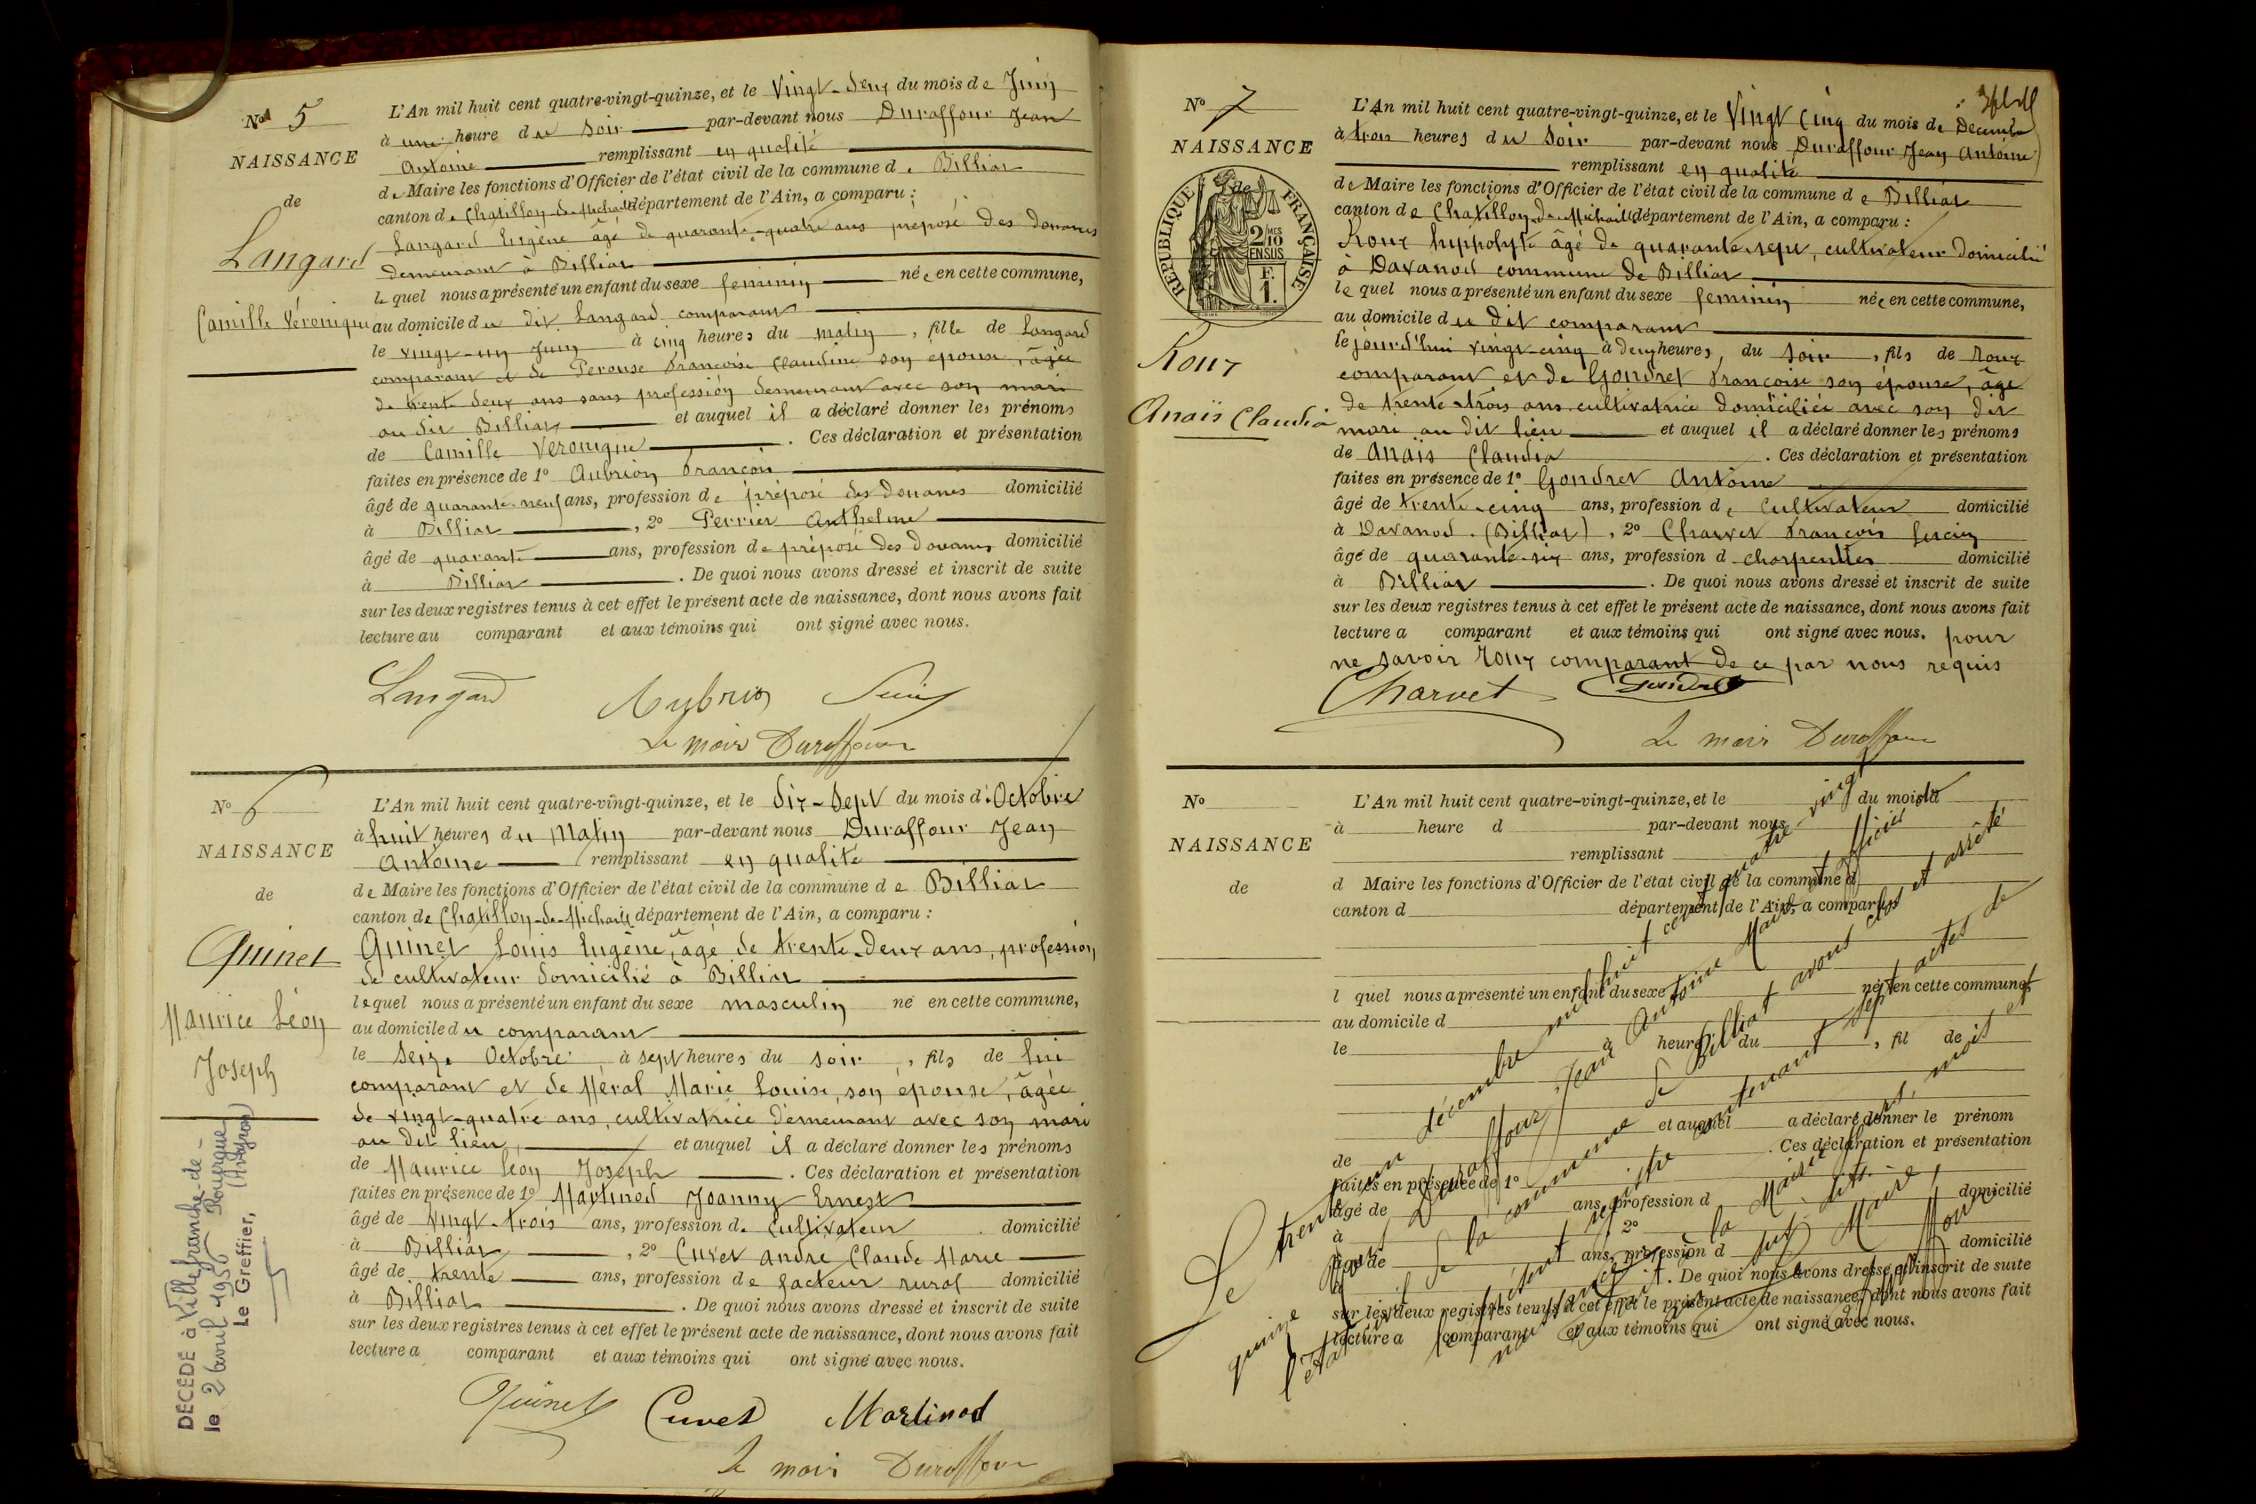 N° 5
NAISSANCE
de
Langard
Camille Véronique
L'An mil huit cent quatre-vingt-quinze, et le Vingt-deux du mois de Juin
à une heure du Soir par-devant nous Duraffour Jean
Antoine remplissant en qualité
de Maire les fonctions d'Officier de l'état civil de la commune de Billiat
canton de Chatillon-de-Michaille département de l'Ain, a comparu :
Langard Eugène âgé de quarante-quatre ans préposé des douanes
demeurant à Billiat
lequel nous a présenté un enfant du sexe féminin née en cette commune,
au domicile du dit Langard comparant
le vingt-un Juin à cinq heures du matin, fille de Langard
comparant et de Perouse Françoise Claudine son épouse, âgée
de trente deux ans sans profession demeurant avec son mari
au dit Billiat et auquel il a déclaré donner les prénoms
de Camille Véronique. Ces déclaration et présentation
faites en présence de 1° Aubrion François
âgé de quarante-neuf ans, profession de préposé des douanes domicilié
à Billiat, 2° Perrier Anthelme
âgé de quarante ans, profession de préposé des douanes domicilié
à Billiat. De quoi nous avons dressé et inscrit de suite
sur les deux registres tenus à cet effet le présent acte de naissance, dont nous avons fait
lecture au comparant et aux témoins qui ont signé avec nous.
Langard Aubrion
Le maire Duraffour
N° 6
NAISSANCE
de
Quinet
Maurice Léon
Joseph
DÉCÉDÉ à Villefranche-de-
Rouergue (Aveyron)
le 2 avril 1950
Le Greffier,
L'An mil huit cent quatre-vingt-quinze, et le dix-sept du mois d'Octobre
à huit heures du Matin par-devant nous Duraffour Jean
Antoine remplissant en qualité
de Maire les fonctions d'Officier de l'état civil de la commune de Billiat
canton de Chatillon-de-Michaille département de l'Ain, a comparu :
Quinet Louis Eugène, âgé de trente-deux ans, profession
de cultivateur domicilié à Billiat
lequel nous a présenté un enfant du sexe masculin né en cette commune,
au domicile du comparant
le seize Octobre à sept heures du soir, fils de lui
comparant et de Méral Marie Louise, son épouse, âgée
de vingt-quatre ans, cultivatrice demeurant avec son mari
au dit lieu, et auquel il a déclaré donner les prénoms
de Maurice Léon Joseph. Ces déclaration et présentation
faites en présence de 1° Martinod Joanny Ernest
âgé de vingt-trois ans, profession de cultivateur domicilié
à Billiat, 2° Cuvet André Claude Marie
âgé de trente ans, profession de facteur rural domicilié
à Billiat. De quoi nous avons dressé et inscrit de suite
sur les deux registres tenus à cet effet le présent acte de naissance, dont nous avons fait
lecture a comparant et aux témoins qui ont signé avec nous.
Quinet Cuvet Martinod
Le maire Duraffour
N° 7
NAISSANCE
de
RÉPUBLIQUE FRANÇAISE
2 MES
10
EN SUS
F.
1.
Roux
Anaïs Claudia
L'An mil huit cent quatre-vingt-quinze, et le Vingt cinq du mois de Décembre
à trois heures du Soir par-devant nous Duraffour Jean Antoine
remplissant en qualité
de Maire les fonctions d'Officier de l'état civil de la commune de Billiat
canton de Chatillon-de-Michaille département de l'Ain, a comparu :
Roux hippolyte âgé de quarante-sept, cultivateur domicilié
à Davanod commune de Billiat
lequel nous a présenté un enfant du sexe féminin née en cette commune,
au domicile du dit comparant
le jourd'hui vingt-cinq à deux heures, du soir, fils de Roux
comparant et de Gondret Françoise son épouse, âgé
de trente-trois ans cultivatrice domiciliée avec son dit
mari au dit lieu et auquel il a déclaré donner les prénoms
de Anaïs Claudia. Ces déclaration et présentation
faites en présence de 1° Gondret Antoine
âgé de trente-cinq ans, profession de cultivateur domicilié
à Davanod (Billiat), 2° Charvet François
âgé de quarante-six ans, profession d charpentier domicilié
à Billiat. De quoi nous avons dressé et inscrit de suite
sur les deux registres tenus à cet effet le présent acte de naissance, dont nous avons fait
lecture a comparant et aux témoins qui ont signé avec nous. pour
ne savoir Roux comparant de ce par nous requis
Charvet Gondret
Le maire Duraffour
N°
NAISSANCE
de
L'An mil huit cent quatre-vingt-quinze, et le du mois d
à heure d par-devant nous
remplissant
d Maire les fonctions d'Officier de l'état civil de la commune d
canton d département de l'Ain, a comparu :
l quel nous a présenté un enfant du sexe né en cette commune,
au domicile d
le à heure du, fil de
et auquel a déclaré donner le prénom
de. Ces déclaration et présentation
faites en présence de 1°
âgé de ans, profession d domicilié
à, 2°
âgé de ans, profession d domicilié
à. De quoi nous avons dressé et inscrit de suite
sur les deux registres tenus à cet effet le présent acte de naissance, dont nous avons fait
lecture a comparant et aux témoins qui ont signé avec nous.
Le trente un décembre mil huit cent quatre vingt
quinze nous Duraffour Jean Antoine Maire et officier de
l'état civil de la commune de Billiat avons clos et arrêté
le présent registre contenant sept actes de
naissance à la Mairie les jour, mois et
an que dessus dits.
Le Maire,
Duraffour